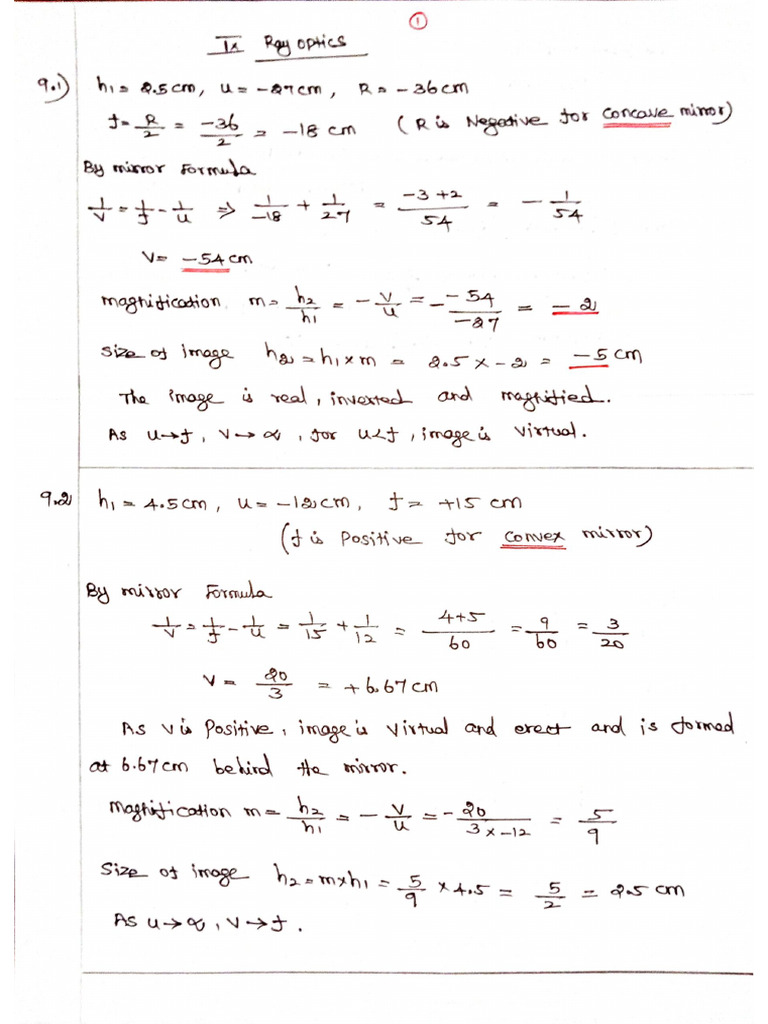 1
IX Ray optics
9.1) h₁ = 2.5cm, u = -27cm, R = -36cm
f = R/2 = -36/2 = -18 cm (R is Negative for concave mirror)
By mirror Formula
1/v = 1/f - 1/u ⇒ 1/-18 + 1/27 = -3+2/54 = - 1/54
V = -54cm
magnification m = h₂/h₁ = - v/u = - -54/-27 = -2
Size of image h₂ = h₁ x m = 2.5 x -2 = -5 cm
The image is real, inverted and magnified.
As u→f, v→∝, for u<f, image is virtual.
9.2 h₁ = 4.5cm, u = -12cm, f = +15 cm
(f is Positive for convex mirror)
By mirror Formula
1/v = 1/f - 1/u = 1/15 + 1/12 = 4+5/60 = 9/60 = 3/20
V = 20/3 = +6.67cm
As v is Positive, image is virtual and erect and is formed
at 6.67cm behind the mirror.
Magnification m = h₂/h₁ = - v/u = - 20/3x-12 = 5/9
Size of image h₂ = m x h₁ = 5/9 x 4.5 = 5/2 = 2.5 cm
As u→∝, v→f.